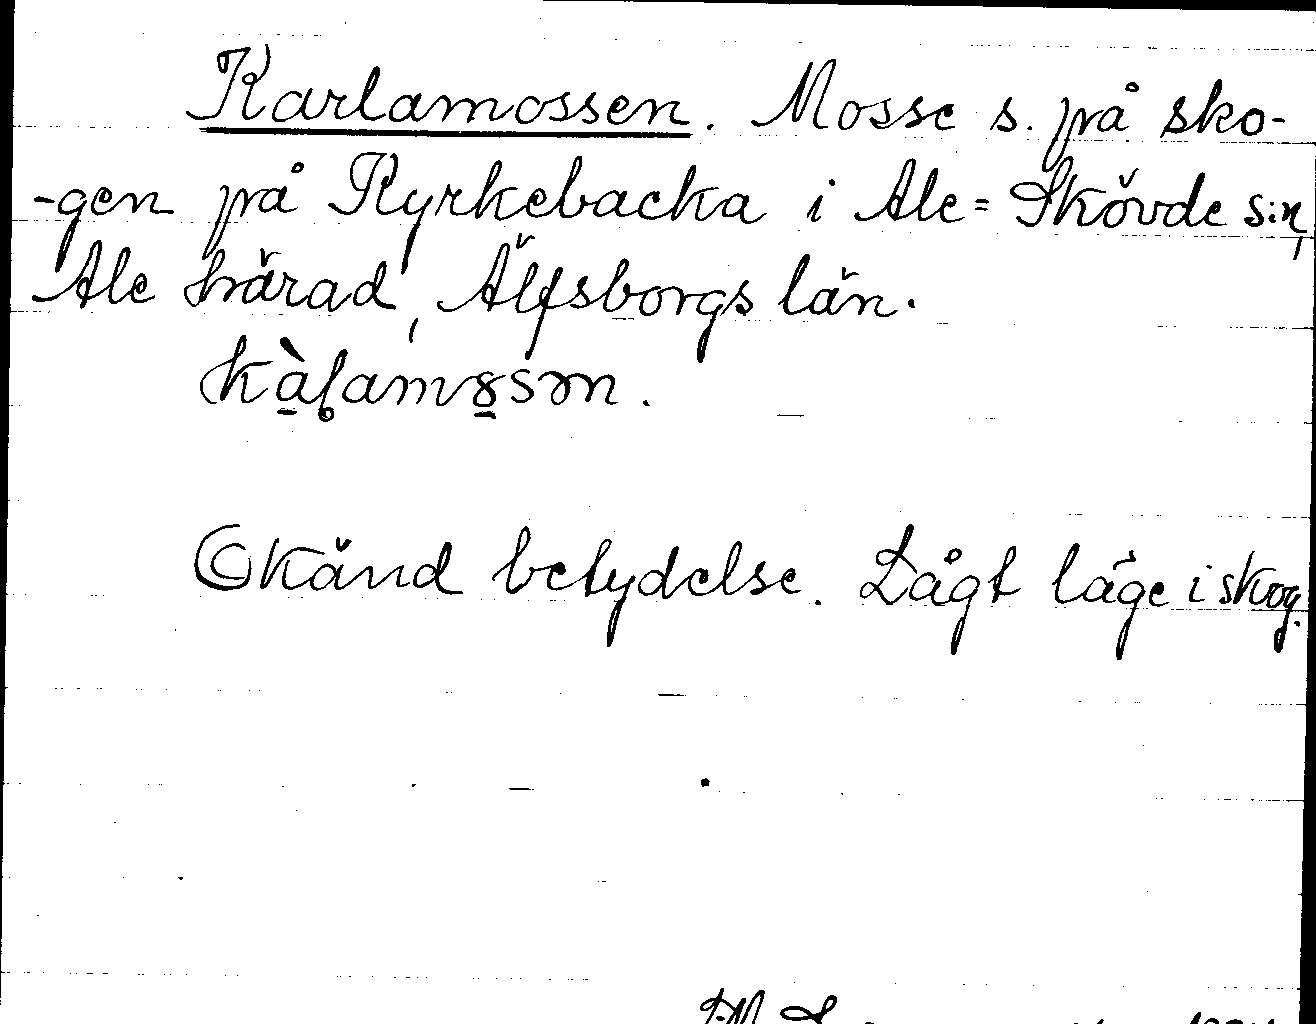 Karlamossen. Mosse s. på sko-
-gen på Kyrkebacka i Ale=Skövde s:n,
Ale härad, Älfsborgs län.
Okänd betydelse. Lågt läge i skog.